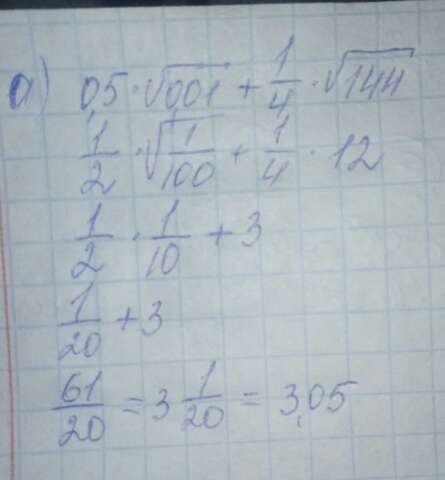 a) 0,5 · √0,01 + 1/4 · √144
1/2 · √1/100 + 1/4 · 12
1/2 · 1/10 + 3
1/20 + 3
61/20 = 3 1/20 = 3,05